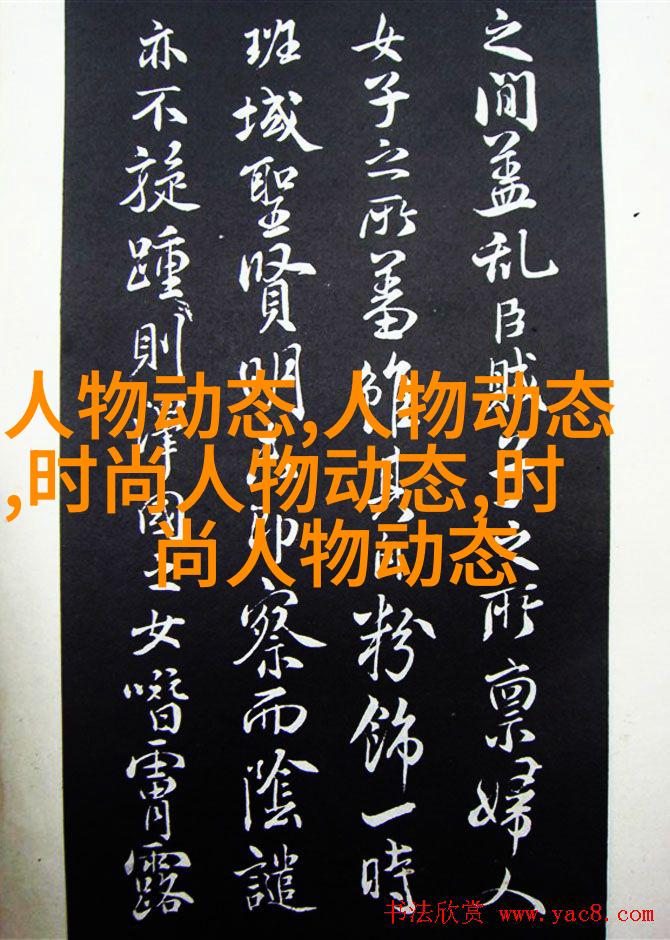 之間盖乱臣賊子之所禀婦人
女子之所蓄雖其粉飾一時
班域聖賢明即察而陰譴
亦不旋踵則澤國士女噆霄露
人物动态,人物动态
,时尚人物动态,时
尚人物动态
书法欣赏 www.yac8.com